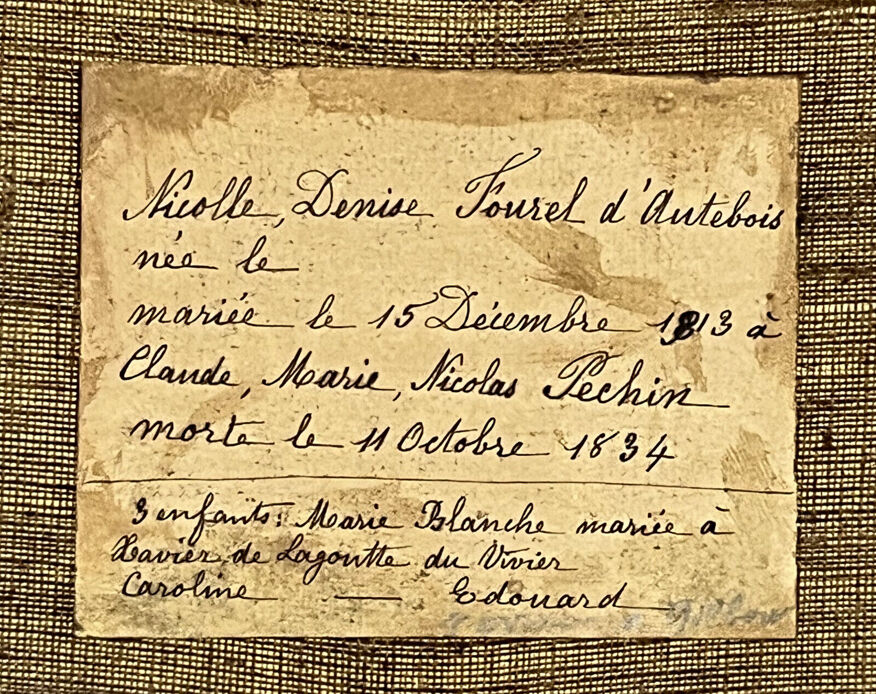 Nicolle, Denise Fourel d'Autebois
née le
mariée le 15 Décembre 1813 à
Claude, Marie, Nicolas Pechin
morte le 11 Octobre 1834
3 enfants: Marie Blanche mariée à
Xavier de Lagoutte du Vivier
Caroline — Edouard